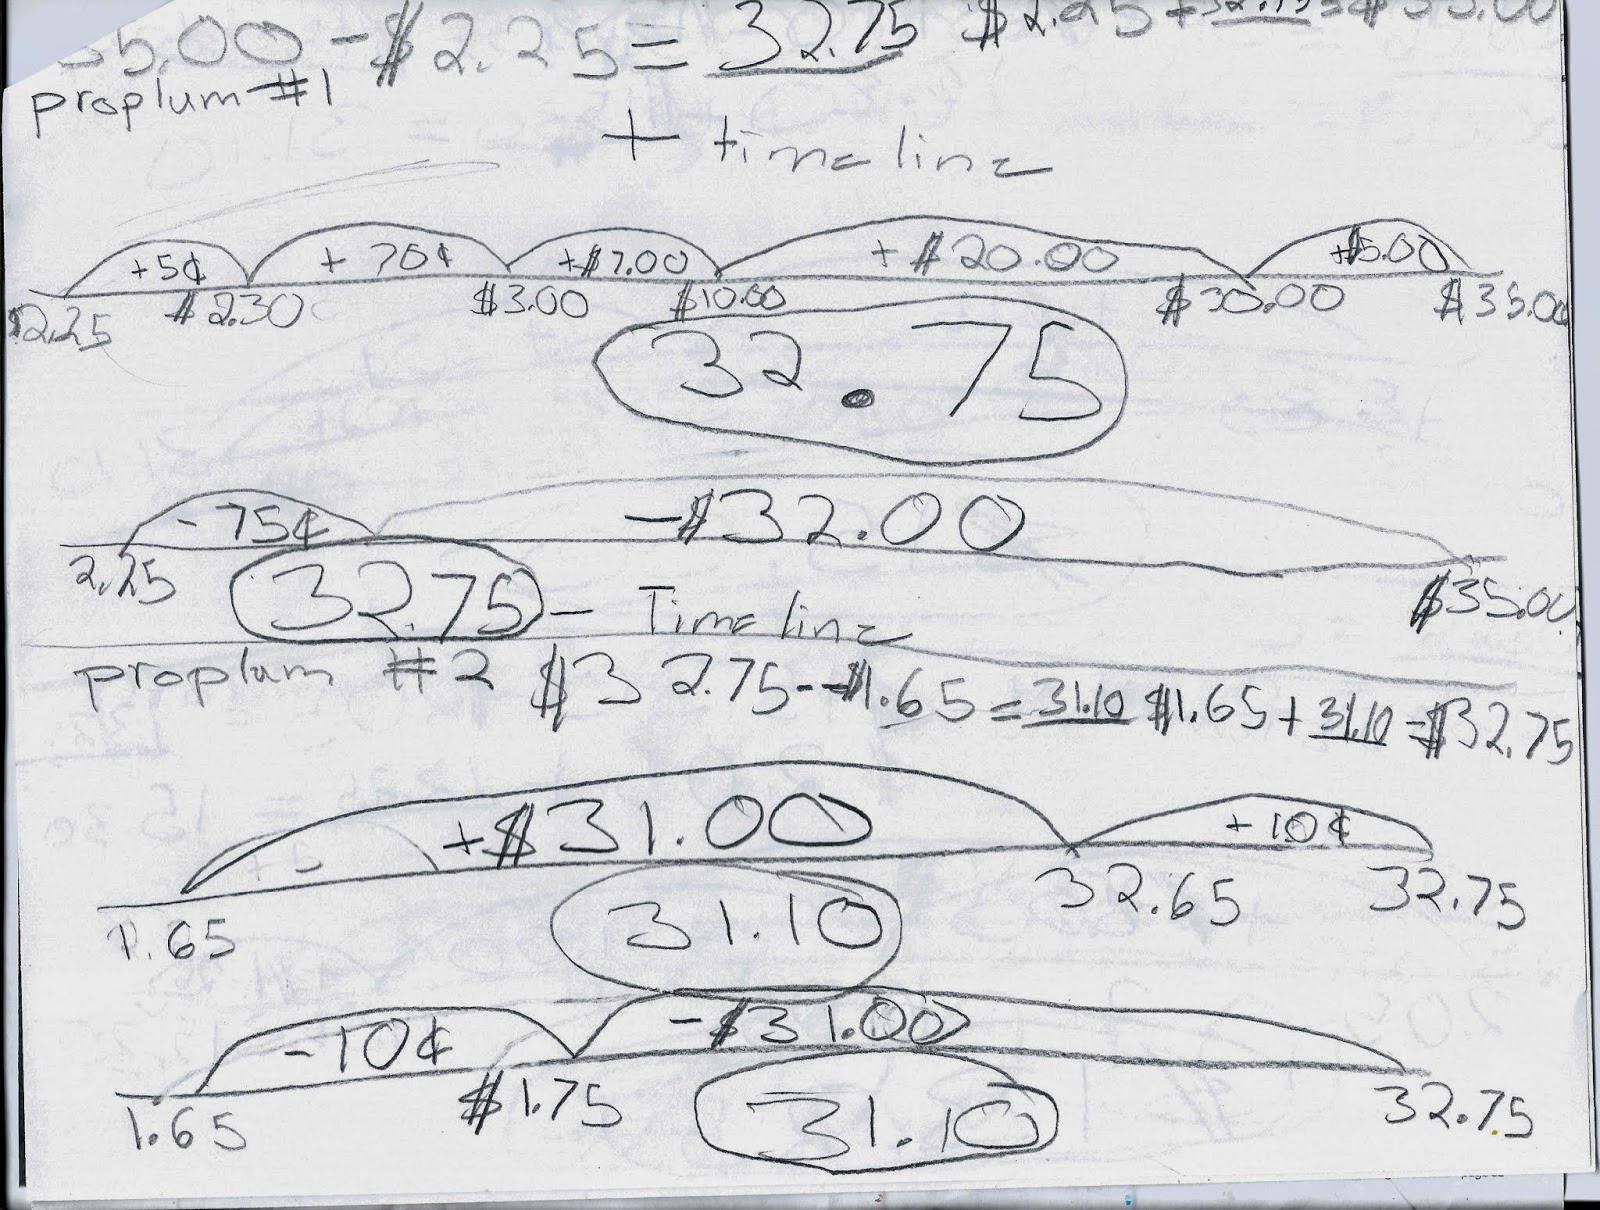 5.00 - $2.25 = 32.75 $2.25 + 32.75 = $35.00
proplum #1
+ timeline
+5¢ + 70¢ +$7.00 + $20.00 +$5.00
$2.25 $2.30 $3.00 $10.00 $30.00 $35.00
32.75
- 75¢ -$32.00
2.25 $35.00
32.75 - Timeline
proplum #2 $32.75 - $1.65 = 31.10 $1.65 + 31.10 = $32.75
+$31.00 + 10¢
1.65 32.65 32.75
31.10
-10¢ -$31.00
1.65 $1.75 32.75
31.10